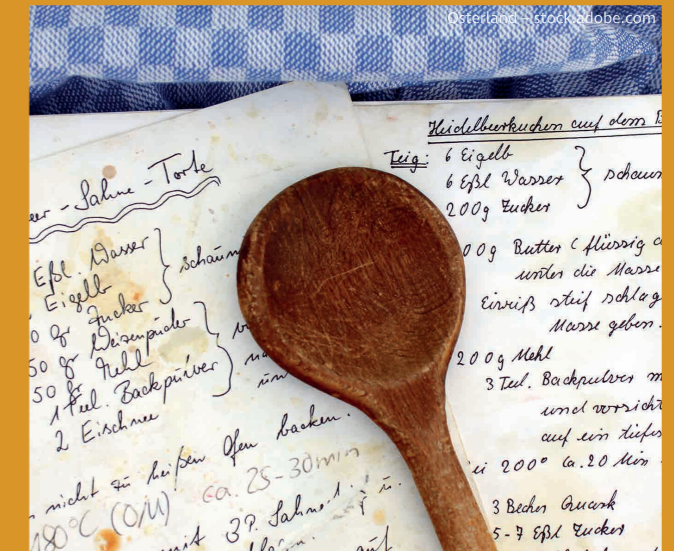 Osterland – stock.adobe.com
er - Sahne - Torte
Eßl. Wasser
Eigelb
schaum
0 gr Zucker
50 gr Weizenpuder
50 gr Mehl
1 Teel. Backpulver
2 Eischnee
nicht zu heißen Ofen backen.
180°C (O/U) ca. 25-30min
mit 3 P. Sahnest. u.
auf
Heidelbeerkuchen auf dem B
Teig: 6 Eigelb
6 Eßl Wasser
schaum
200g Zucker
00g Butter ( flüssig
unter die Masse
Eiweiß steif schlag
Masse geben.
200g Mehl
3 Teel. Backpulver m
und vorsicht
auf ein tiefes
ei 200° ca. 20 Min
3 Becher Quark
5-7 Eßl Zucker